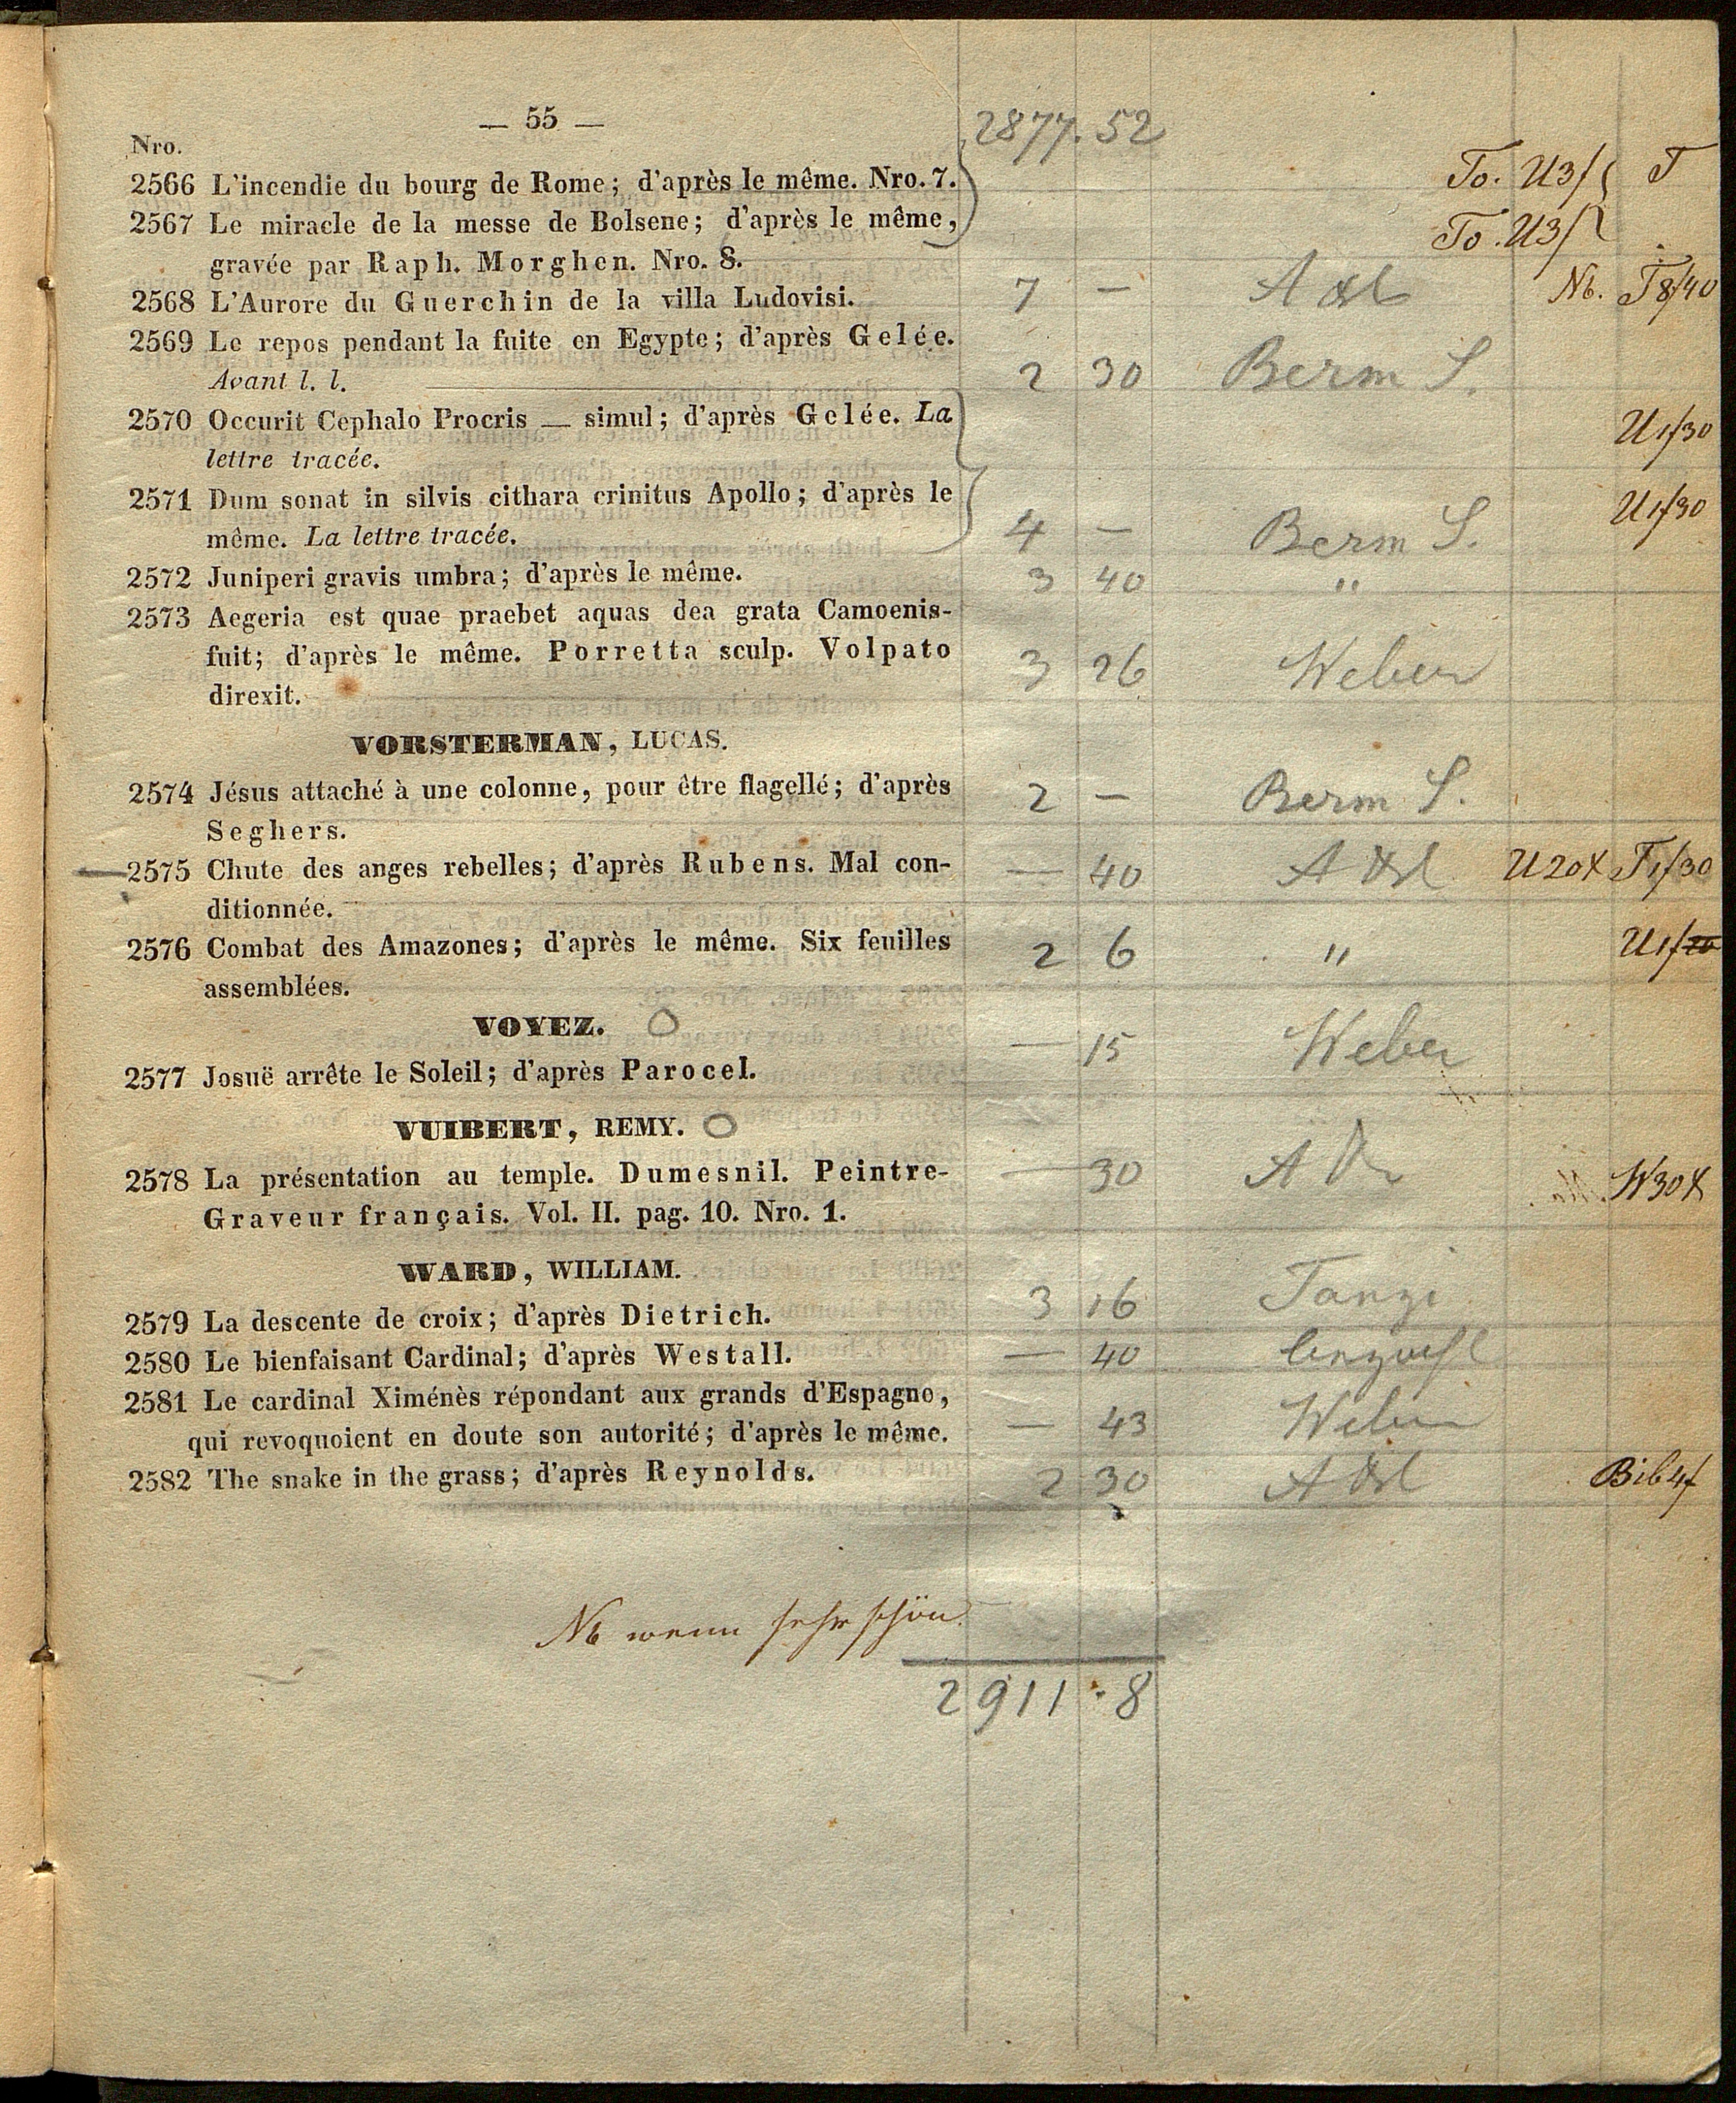 — 55 —
2877. 52
Nro.
2566 L'incendie du bourg de Rome; d'après le même. Nro. 7.
To. U3f T
2567 Le miracle de la messe de Bolsene; d'après le même,
To. U3f
gravée par Raph. Morghen. Nro. 8.
2568 L'Aurore du Guerchin de la villa Ludovisi. 7 —
Nb. T8f40
2569 Le repos pendant la fuite en Egypte; d'après Gelée.
Avant l. l. 2 30 Berm S.
2570 Occurit Cephalo Procris — simul; d'après Gelée. La
U1f30
lettre tracée.
2571 Dum sonat in silvis cithara crinitus Apollo; d'après le
U1f30
même. La lettre tracée. 4 — Berm S.
2572 Juniperi gravis umbra; d'après le même. 3 40 "
2573 Aegeria est quae praebet aquas dea grata Camoenis-
fuit; d'après le même. Porretta sculp. Volpato 3 26 Weber
direxit.
VORSTERMAN, LUCAS.
2574 Jésus attaché à une colonne, pour être flagellé; d'après 2 — Berm S.
Seghers.
2575 Chute des anges rebelles; d'après Rubens. Mal con- — 40 U20x T1f30
ditionnée.
2576 Combat des Amazones; d'après le même. Six feuilles 2 6 "
assemblées.
VOYEZ.
— 15 Weber
2577 Josuë arrête le Soleil; d'après Parocel.
VUIBERT, REMY.
2578 La présentation au temple. Dumesnil. Peintre- — 30 W30x
Graveur français. Vol. II. pag. 10. Nro. 1.
WARD, WILLIAM.
2579 La descente de croix; d'après Dietrich. 3 16 Tanzi
2580 Le bienfaisant Cardinal; d'après Westall. — 40
2581 Le cardinal Ximénès répondant aux grands d'Espagne,
qui revoquoient en doute son autorité; d'après le même. — 43 Weber
2582 The snake in the grass; d'après Reynolds. 2 30 Bib4f
Nb wenn sehr schön
2911 . 8